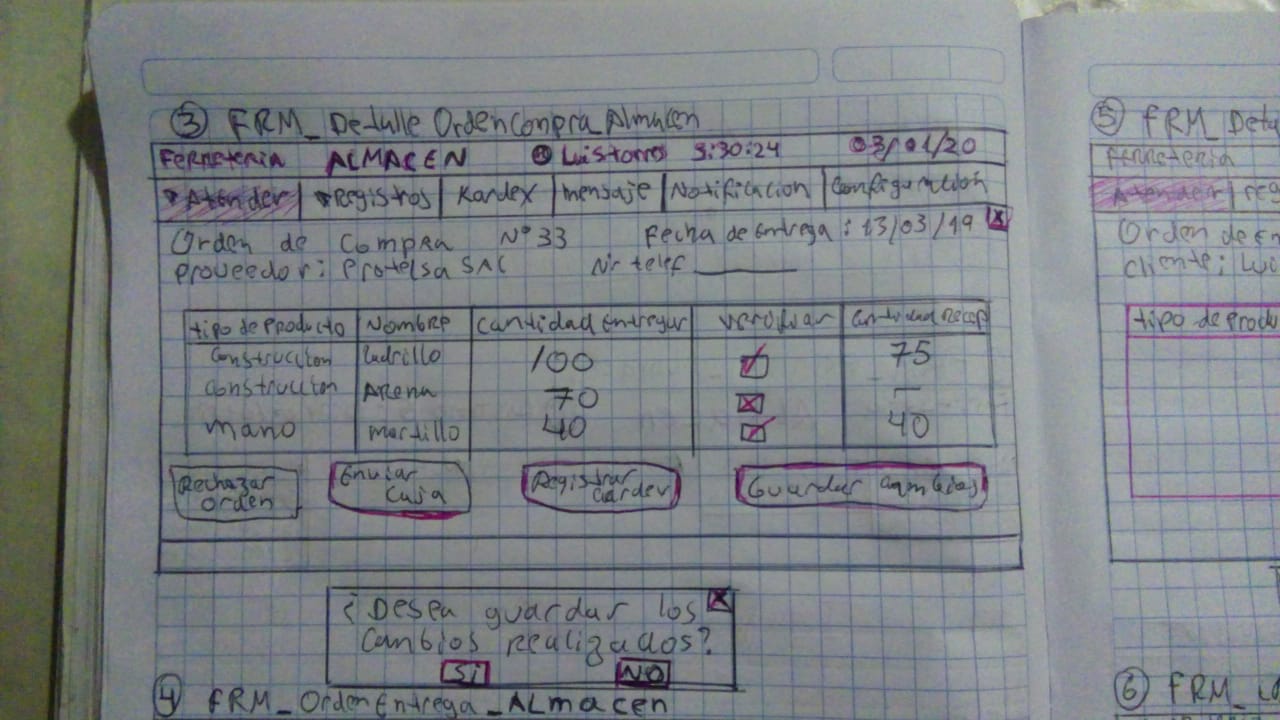 ③ FRM_Detalle OrdenCompra_Almacen
Ferreteria ALMACEN Luis torres 3:30:24 03/01/20
Atender Registros Kardex mensaje Notificacion Configuracion
Orden de Compra N° 33 Fecha de Entrega: 13/03/19 X
proveedor: Protelsa SAC Nr telef
tipo de Producto Nombre Cantidad Entregar Verificar Cantidad Recep
Construccion Ladrillo 100 75
Construccion Arena 70 X —
mano martillo 40 40
Rechazar
Orden
Enviar
Caja
Registrar
Guardar Cambios
¿Desea guardar los X
Cambios realizados?
Si NO
④ FRM_Orden Entrega_ALmacen
⑤ FRM_Deta
Ferreteria
Atender Reg
Orden de En
Cliente: Lui
tipo de Produ
⑥ FRM_